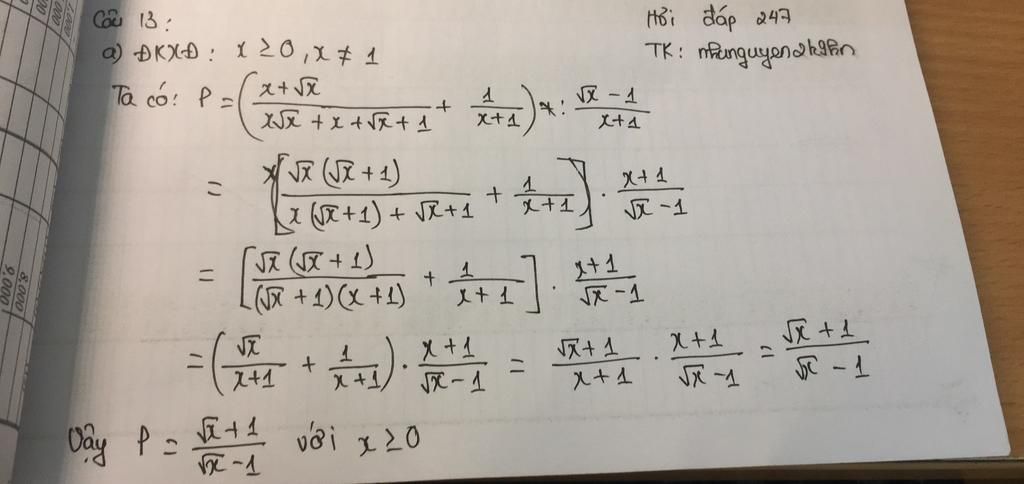 Câu 13:
Hỏi đáp 247
a) ĐKXĐ: x ≥ 0, x ≠ 1
TK: nhanguyen2k9hn
Ta có: P = ( (x+√x)/(x√x + x + √x + 1) + 1/(x+1) ) : (√x - 1)/(x+1)
= [ √x(√x+1)/(x(√x+1) + √x+1) + 1/(x+1) ] . (x+1)/(√x - 1)
= [ √x(√x+1)/((√x+1)(x+1)) + 1/(x+1) ] . (x+1)/(√x - 1)
= ( √x/(x+1) + 1/(x+1) ) . (x+1)/(√x - 1) = (√x+1)/(x+1) . (x+1)/(√x - 1) = (√x+1)/(√x - 1)
Vậy P = (√x+1)/(√x - 1) với x ≥ 0